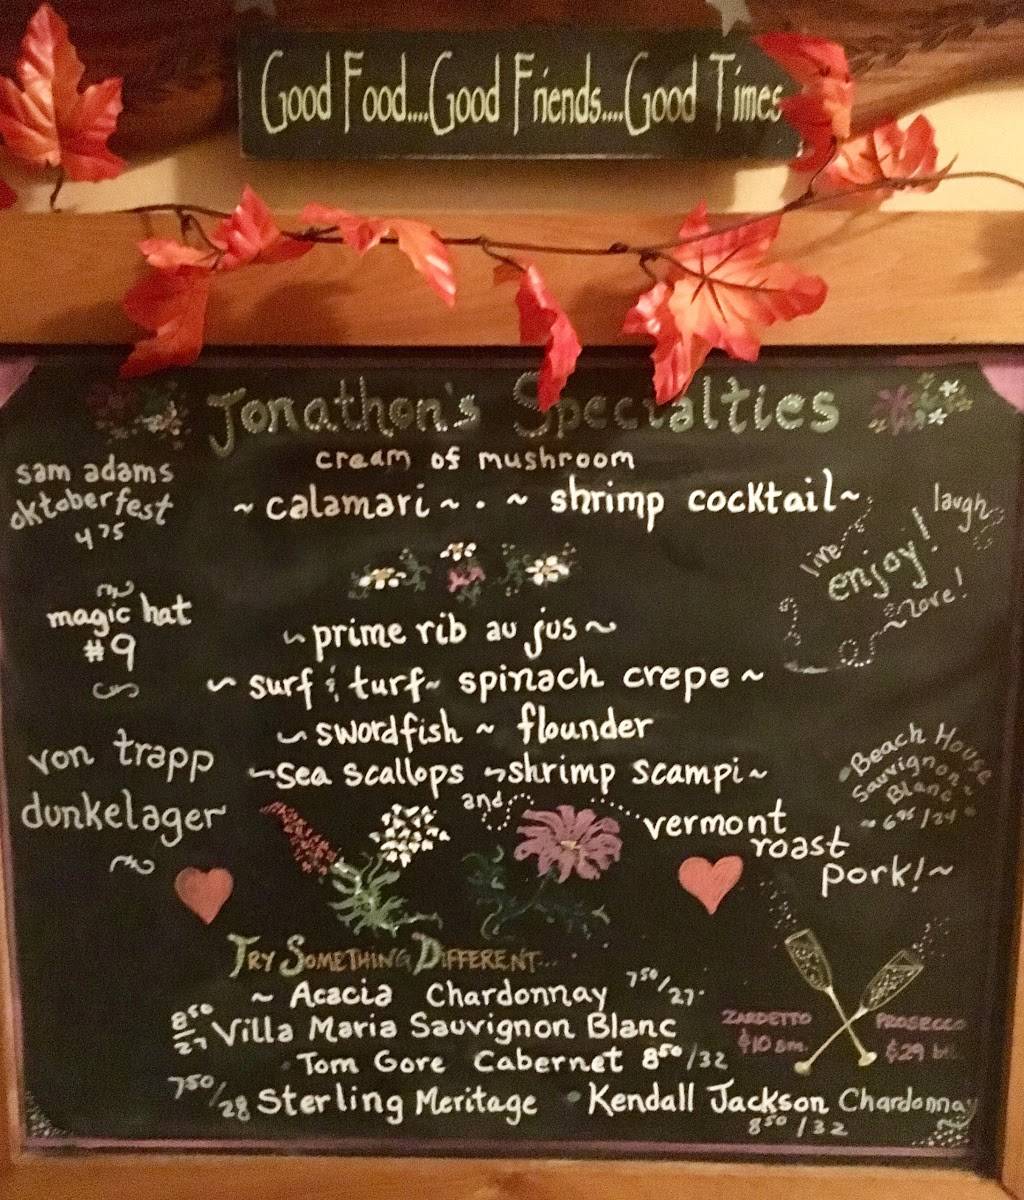 Good Food....Good Friends....Good Times
Jonathon's Specialties
cream of mushroom
~ calamari ~ · ~ shrimp cocktail ~
sam adams
oktoberfest
4 75
magic hat
#9
von trapp
dunkelager
live
laugh
enjoy!
~love!
~ prime rib au jus ~
~ surf & turf ~ spinach crepe ~
~ swordfish ~ flounder
~ sea scallops ~ shrimp scampi ~
and
vermont
roast
pork! ~
Beach House
Sauvignon
Blanc
~ 6 95 / 24
Try Something Different...
~ Acacia Chardonnay 7 50 / 27
8 50 / 27 Villa Maria Sauvignon Blanc
Tom Gore Cabernet 8 50 / 32
7 50 / 28 Sterling Meritage • Kendall Jackson Chardonnay
8 50 / 32
Zardetto
$10 sm.
Prosecco
$29 btl.